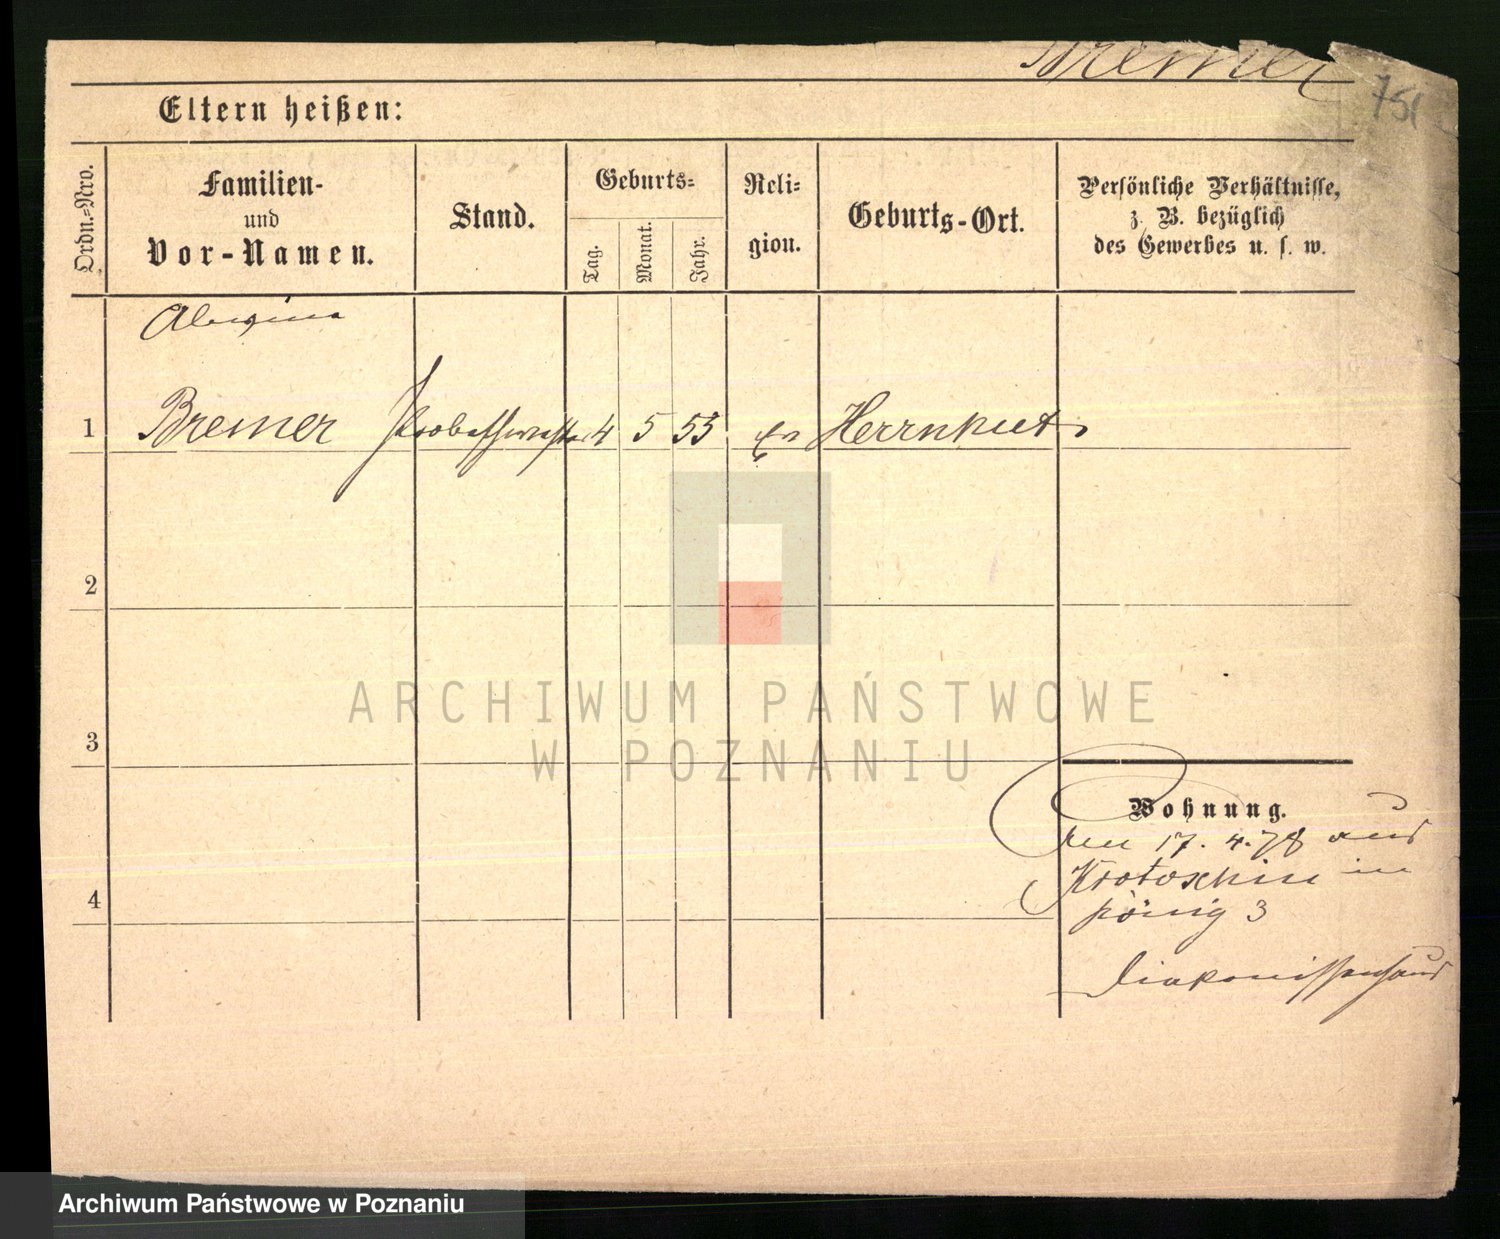 Bremer
751
Eltern heißen:
Ordn.=Nro.
Familien-
und
Vor-Namen.
Stand.
Geburts=
Tag.
Monat.
Jahr.
Reli=
gion.
Geburts-Ort.
Persönliche Verhältnisse,
z. B. bezüglich
des Gewerbes u. s. w.
1
Bremer Probeschwester 4 5 53 ev Herrnhut
2
3
4
Wohnung.
den 17. 4. 78 aus
Krotoschin in
König 3
Diakonissenhaus
ARCHIWUM PAŃSTWOWE
W POZNANIU
Archiwum Państwowe w Poznaniu